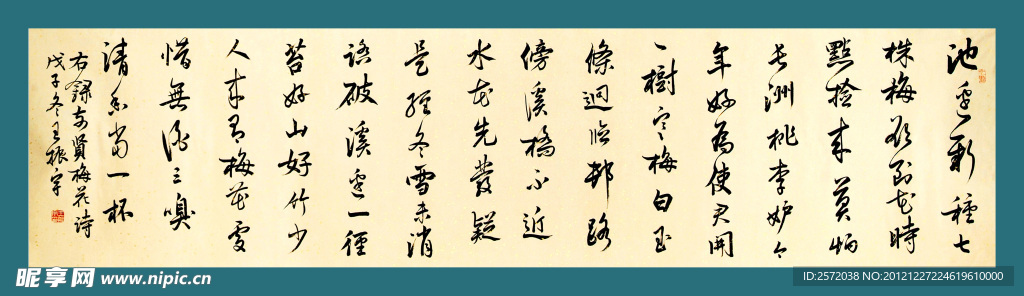 池邊新種七
株梅欲到花時
點撿來莫怕
長洲桃李妒今
年好為使君開
一樹寒梅白玉
條迥臨邨路
傍溪橋不近
水花先發疑
是經冬雪未消
踏破溪邊一徑
苔好山好竹少
人來有梅花處
惜無酒三嗅
清香當一杯
右錄前賢梅花詩
戊子冬王振宇
昵享网 www.nipic.cn
ID:2572038 NO:20121227224619610000